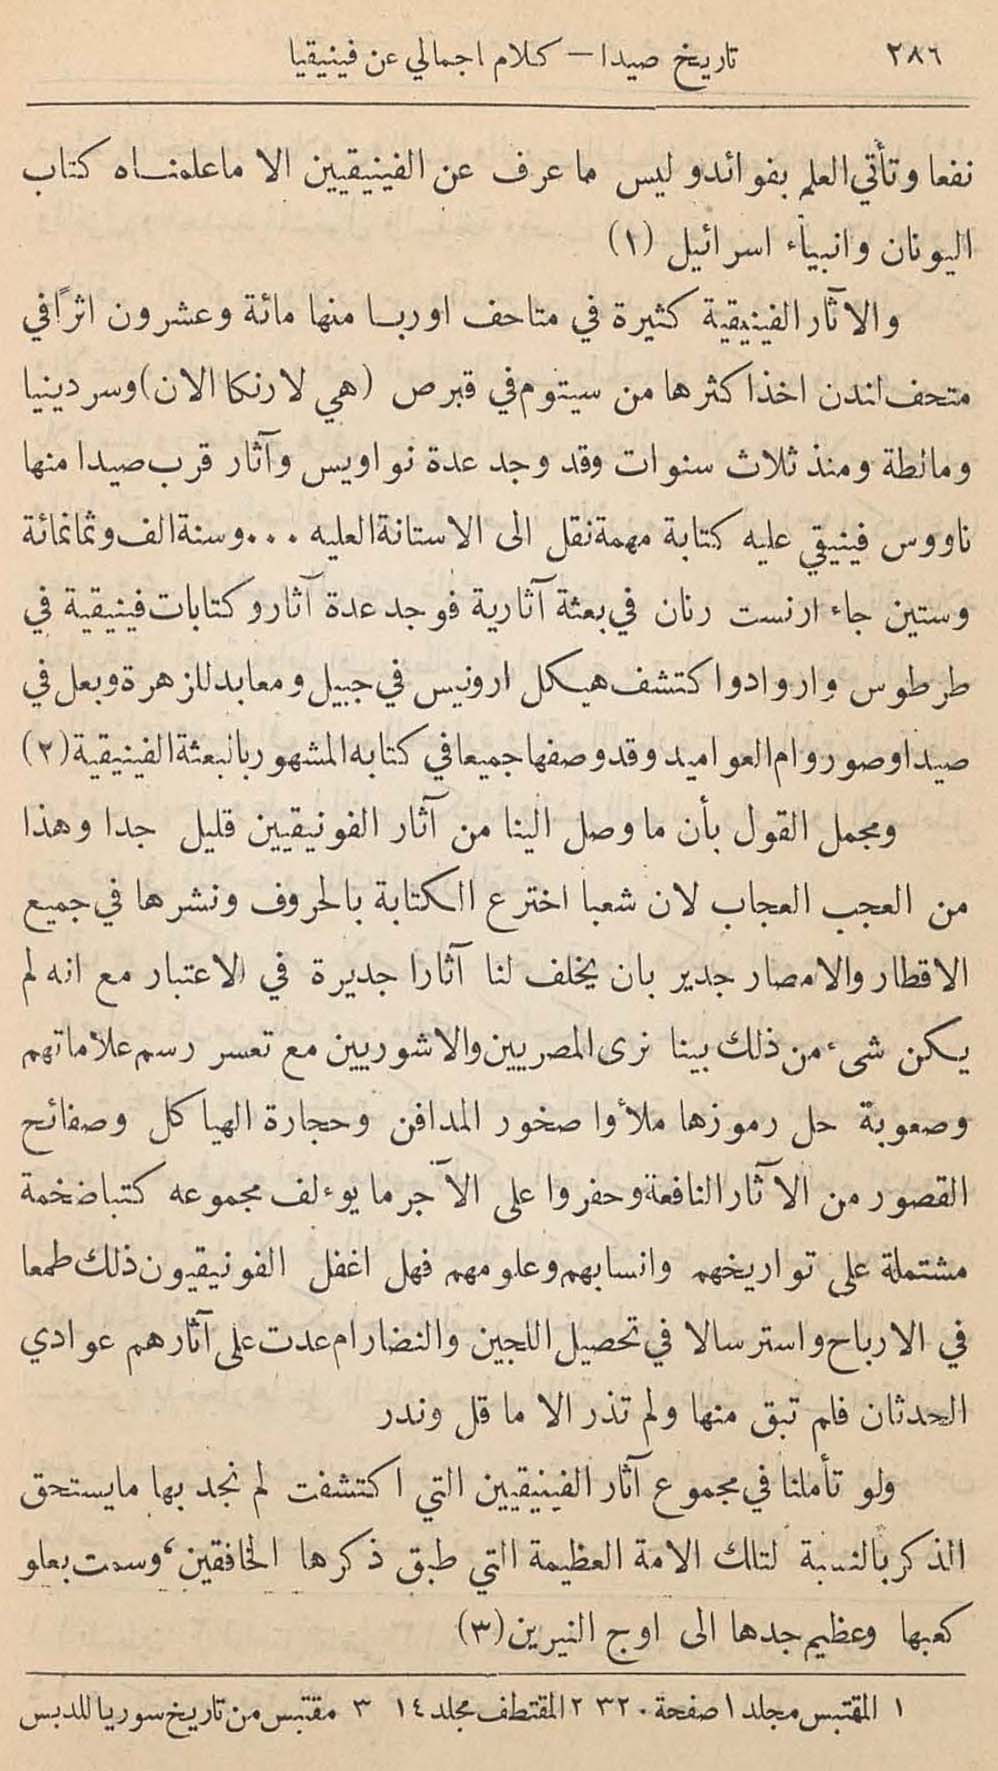 ٢٨٦ تاريخ صيدا – كلام اجمالي عن فينيقيا
نفعا وتأتي العلم بفوائد وليس ما عرف عن الفينيقيين الا ما علمنـاه كتاب
اليونان وانبياء اسرائيل (١)
والآثار الفينيقية كثيرة في متاحف اوربـا منها مائة وعشرون اثرًا في
متحف لندن اخذ اكثرها من سيتوم في قبرص (هي لارنكا الان) وسردينيا
ومالطة ومنذ ثلاث سنوات وقد وجد عدة نواويس وآثار قرب صيدا منها
ناووس فينيقي عليه كتابة مهمة نقل الى الاستانة العليه ... وسنة الف وثمانمائة
وستين جاء ارنست رنان في بعثة آثارية فوجد عدة آثار وكتابات فينيقية في
طرطوس وارواد واكتشف هيكل ارونيس في جبيل ومعابد للزهرة وبعل في
صيدا وصور وام العواميد وقد وصفها جميعا في كتابه المشهور بالبعثة الفينيقية (٢)
ومجمل القول بأن ما وصل الينا من آثار الفونيقيين قليل جدا وهذا
من العجب العجاب لان شعبا اخترع الكتابة بالحروف ونشرها في جميع
الاقطار والامصار جدير بان يخلف لنا آثارا جديرة في الاعتبار مع انه لم
يكن شيء من ذلك بينا نرى المصريين والاشوريين مع تعسر رسم علاماتهم
وصعوبة حل رموزها ملأوا صخور المدافن وحجارة الهياكل وصفائح
القصور من الآثار النافعة وحفروا على الآجر ما يوءلف مجموعه كتبا ضخمة
مشتملة على تواريخهم وانسابهم وعلومهم فهل اغفل الفونيقيون ذلك طمعا
في الارباح واسترسالا في تحصيل اللجين والنضار ام عدت على آثارهم عوادي
الحدثان فلم تبق منها ولم تذر الا ما قل وندر
ولو تأملنا في مجموع آثار الفينيقيين التي اكتشفت لم نجد بها ما يستحق
الذكر بالنسبة لتلك الامة العظيمة التي طبق ذكرها الخافقين، وسمت بعلو
كعبها وعظيم جدها الى اوج النيرين (٣)
١ المقتبس مجلد ١ صفحة ٢٣٠ ٢ المقتطف مجلد ١٤ ٣ مقتبس من تاريخ سوريا للدبس